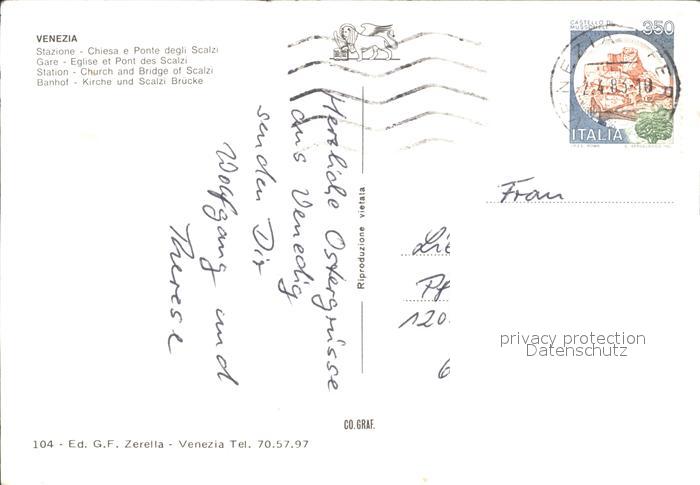 VENEZIA
Stazione - Chiesa e Ponte degli Scalzi
Gare - Eglise et Pont des Scalzi
Station - Church and Bridge of Scalzi
Banhof - Kirche und Scalzi Brücke
CASTELLO DI
MUSSOMELI
350
VENEZIA
ITALIA
Herzliche Ostergrüsse
aus Venedig
senden Dir
Wolfgang und
Therese
Riproduzione vietata
Frau
120
privacy protection
Datenschutz
CO.GRAF.
104 - Ed. G.F. Zerella - Venezia Tel. 70.57.97